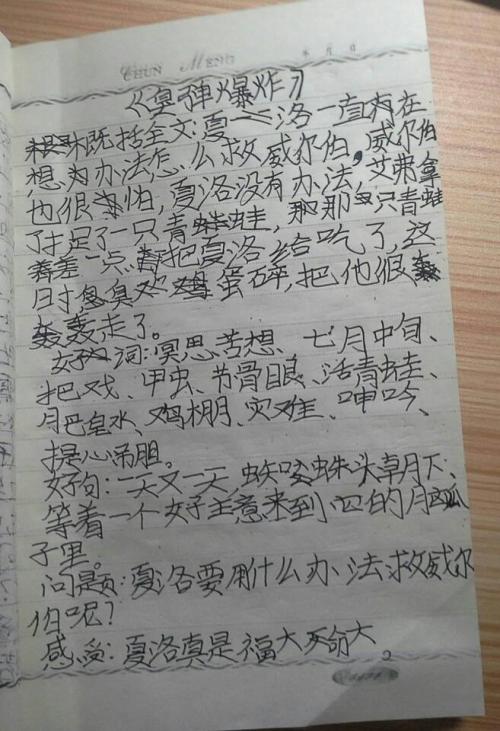 CHUN MENG
年 月 日
《臭弹爆炸》
概括全文:夏洛一直在
想办法怎么救威尔伯,威尔伯
也很害怕,夏洛没有办法,艾弗拿
了捉了一只青蛙,那只青蛙
差一点把夏洛给吃了,这
时臭鸡蛋碎,把他很
轰走了。
好词:冥思苦想、七月中旬、
把戏、甲虫、节骨眼、活青蛙、
肥皂水、鸡棚、灾难、呻吟、
提心吊胆。
好句:一天又一天,蜘蛛头朝下,
等着一个好主意来到她的脑
子里。
问题:夏洛要用什么办法救威尔
伯呢?
感受:夏洛真是福大命大
2